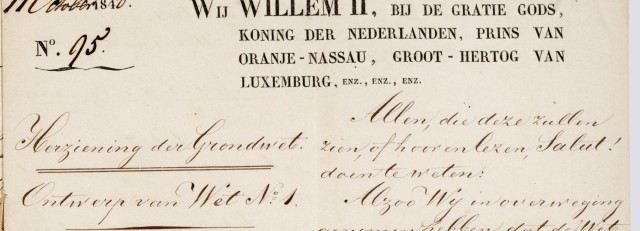 October 1848.
N.º 95.
Herziening der Grondwet.
Ontwerp van Wet N.º 1.
WIJ WILLEM II, BIJ DE GRATIE GODS,
KONING DER NEDERLANDEN, PRINS VAN
ORANJE-NASSAU, GROOT-HERTOG VAN
LUXEMBURG, ENZ., ENZ., ENZ.
Allen, die deze zullen
zien, of hooren lezen, Salut!
doen te weten:
Alzoo Wij in overweging
genomen hebben, dat de Wet